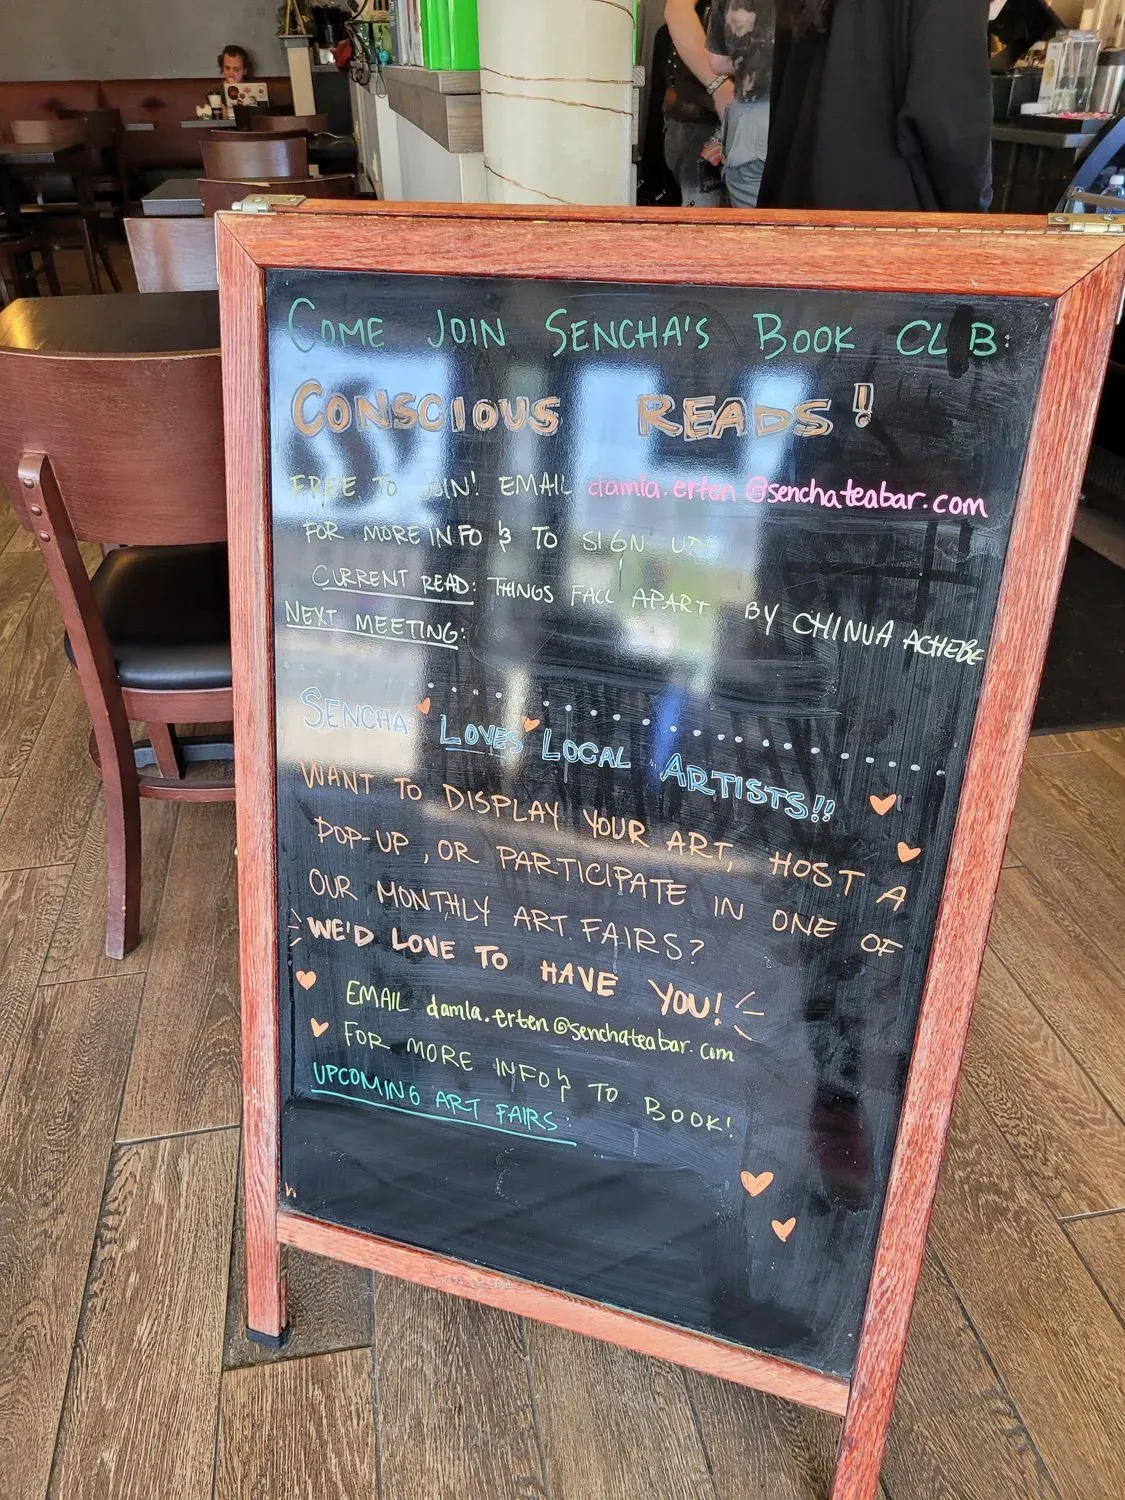 COME JOIN SENCHA'S BOOK CL B:
CONSCIOUS READS!
FREE TO JOIN! EMAIL damla.erten@senchateabar.com
FOR MORE INFO & TO SIGN UP!
CURRENT READ: THINGS FALL APART BY CHINUA ACHEBE
NEXT MEETING:
SENCHA LOVES LOCAL ARTISTS!!
WANT TO DISPLAY YOUR ART, HOST A
POP-UP, OR PARTICIPATE IN ONE OF
OUR MONTHLY ART FAIRS?
WE'D LOVE TO HAVE YOU!
EMAIL damla.erten@senchateabar.com
FOR MORE INFO & TO BOOK!
UPCOMING ART FAIRS: